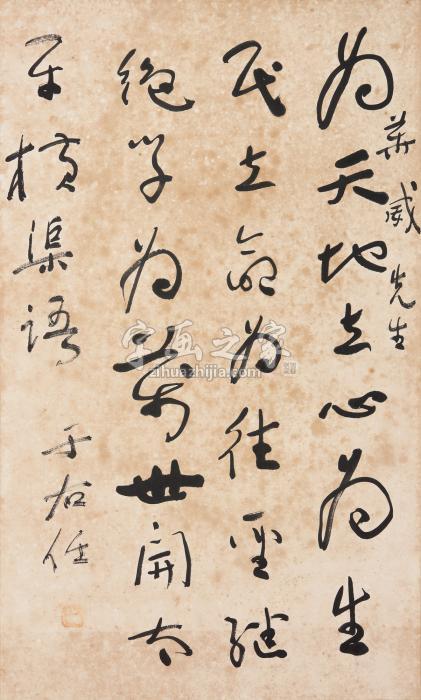 为天地立心为生
华威先生
民立命为往圣继
绝学为万世开太
平横渠语
于右任
字画之家
zihuazhijia.com